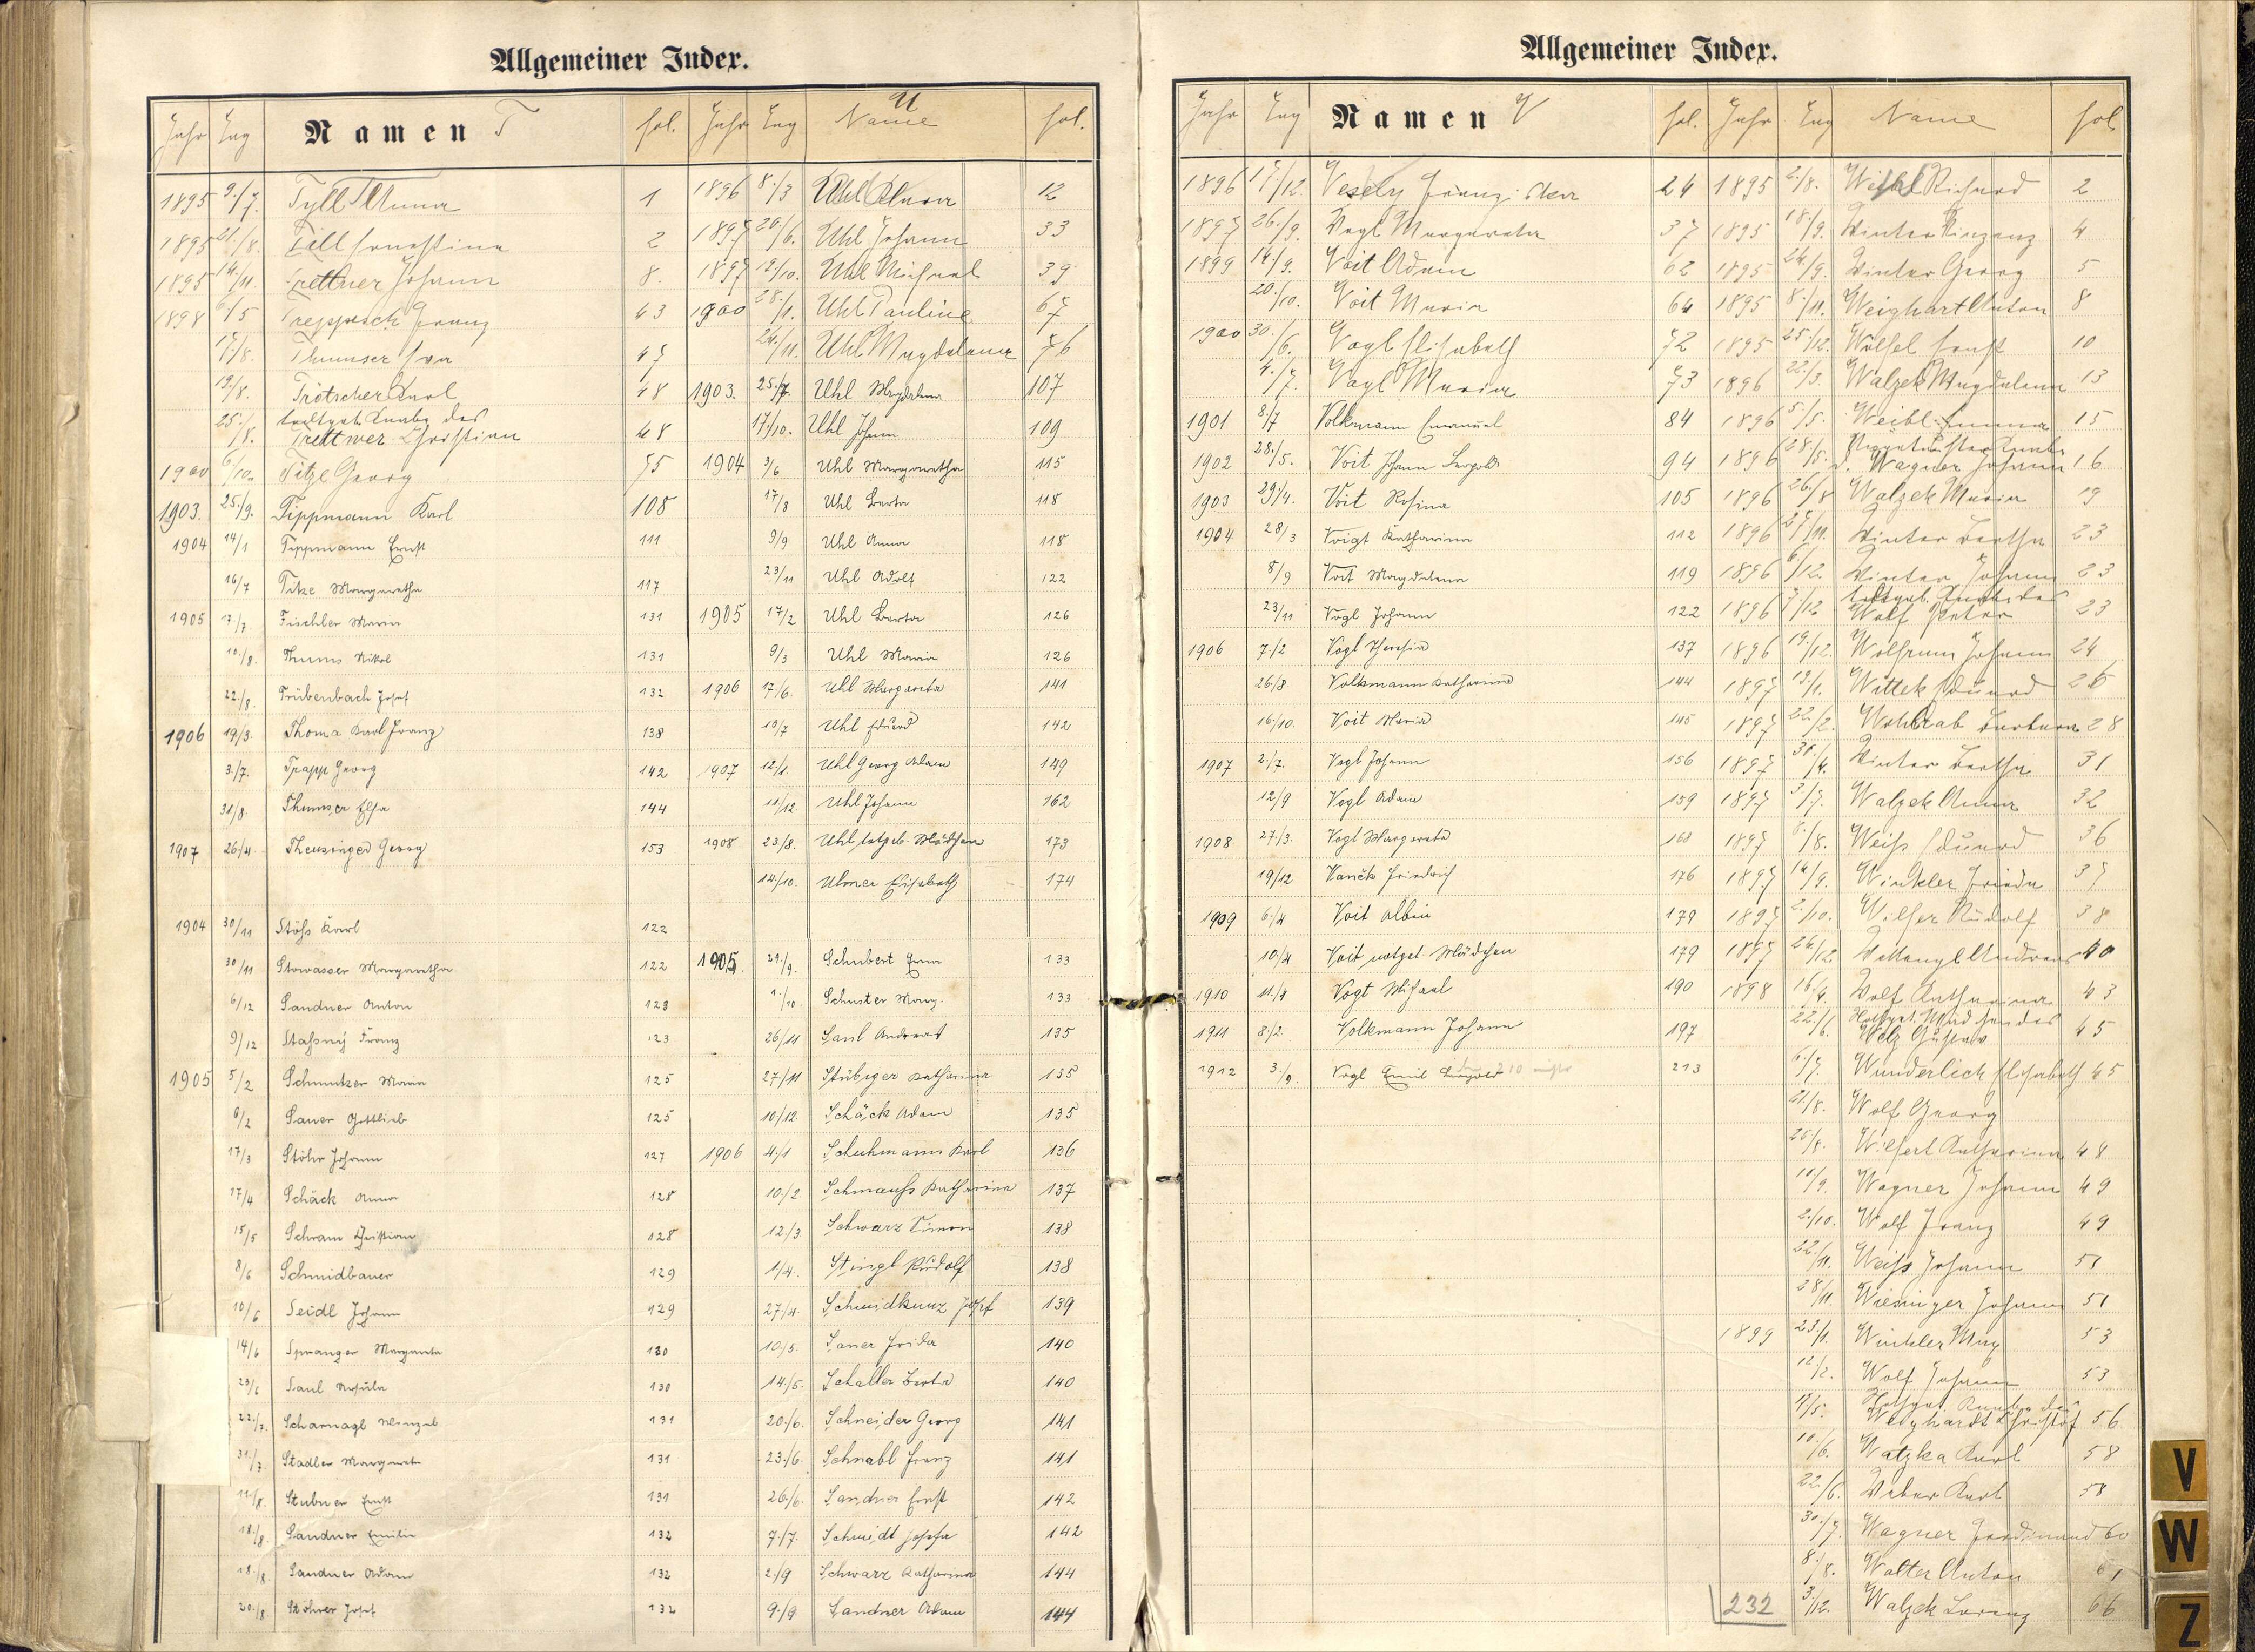 Allgemeiner Index.
Jahr Tag Namen T fol. Jahr Tag U Name fol.
1895 9./7. Tyll Anna 1
1895 21./8. Till Ernestine 2
1895 14./11. Trettner Johann 8.
1898 6/5 Treppesch Franz 43
17/8. Thumser Eva 47
19./8. Trötscher Karl 48
25./8. todtgeb. Knabe des
Trettwer Christian 48
1900 6/10. Titzl Georg 75
1903. 25./9. Tippmann Karl 108
1904 14/1 Tippmann Ernst 111
16/7 Titze Margaretha 117
1905 17/7. Tischler Maria 131
10./8. Thums Nikol 131
22./8. Trübenbach Josef 132
1906 19/3. Thoma Karl Franz 138
3./7. Trapp Georg 142
31/8. Thumser Elsa 144
1907 26/4 Theusinger Georg 153
1904 30/11 Stöhs Karl 122
30/11 Stowasser Margaretha 122
6/12 Sandner Anton 123
9/12 Stassný Franz 123
1905 5/2 Schmutzer Maria 125
6/2 Sauer Gottlieb 125
17/3 Stöhr Johann 127
17/4 Schäck Anna 128
15/5 Schram Christian 128
8/6 Schmidbauer 129
10/6 Seidl Johann 129
14/6 Spranger Margareta 130
23/6 Saul Ursula 130
22./7. Scharnagl Wenzel 131
31./7. Stadler Margareta 131
11./8. Stubner Ernst 131
18./8. Sandner Emilie 132
18./8. Sandner Adam 132
20./8. Stöhrer Josef 132
1896 8./3 Uhl Anna 12
1897 20/6. Uhl Johann 33
1897 19./10. Uhl Michael 39
1900 28./1. Uhl Pauline 67
24./11. Uhl Magdalena 76
1903. 25./7. Uhl Magdalena 107
17./10. Uhl Johann 109
1904 3/6 Uhl Margaretha 115
17/8 Uhl Berta 118
9/9 Uhl Anna 118
23/11 Uhl Adolf 122
1905 17/2 Uhl Berta 126
9/3 Uhl Maria 126
1906 17./6. Uhl Margareta 141
10/7 Uhl Eduard 142
1907 12./1. Uhl Georg Adam 149
11/12 Uhl Johann 162
1908 23./8. Uhl, totgeb. Mädchen 173
14/10. Ulmer Elisabeth 174
1905. 29./9. Schubert Erna 133
1./10. Schuster Marg. 133
26/11 Saul Andreas 135
27/11 Stübiger Katharina 135
10/12 Schäck Adam 135
1906 4./1 Schuhmann Karl 136
10./2. Schmauss Katharina 137
12/3 Schwarz Simon 138
1/4. Stingl Rudolf 138
27/4. Schmidkunz Josef 139
10/5. Saner Frida 140
14./5. Schaller Berta 140
20./6. Schneider Georg 141
23./6. Schnabl Franz 141
26/6. Sandner Ernst 142
7./7. Schmidt Josefa 142
2./9 Schwarz Katharina 144
9./9. Sandner Adam 144
Allgemeiner Index.
Jahr Tag Namen V fol. Jahr Tag Name fol.
1896 17./12. Vesely Franziska 24
1897 26./9. Vogl Margareta 37
1899 14/9. Voit Adam 62
20./10. Voit Maria 64
1900 30./6. Vogl Elisabeth 72
4./7. Vogl Maria 73
1901 8./7 Volkmann Emanuel 84
1902 28./5. Voit Johann Leopold 94
1903 29./4. Voit Rosina 105
1904 28/3 Voigt Katharina 112
8/9 Voit Magdalena 119
23/11 Vogl Johann 122
1906 7./2 Vogl Theresia 137
26./8 Volkmann Katharina 144
16/10. Voit Maria 145
1907 2./7. Vogl Johann 156
12/9 Vogl Adam 159
1908 27./3. Vogl Margareta 168
19/12 Vanék Friedrich 176
1909 6./4 Voit Albin 179
10./4 Voit notget. Mädchen 179
1910 11./9 Vogt Michael 190
1911 8./2. Volkmann Johann 197
1912 3./9. Vogl Emil Leopold 213
1895 2./8. Weibl Richard 2
1895 18./9. Winter Vinzenz 4
1895 24./9. Winter Georg 5
1895 8./11. Weighart Anton 8
1895 25./12. Wölfel Ernst 10
1896 22/3. Walzek Magdalena 13
1896 5./5. Weibl Emma 15
1896 28./5. Nothgetaufter Knabe
d. Wagner Johann 16
1896 26./8 Walzek Maria 19
1896 27/11. Winter Bertha 23
1896 6/12. Winter Johann 23
1896 7/12 todtgeb. Knabe des
Wolf Peter 23
1896 19./12. Wolfrum Johann 24
1897 13/1. Wittek Eduard 26
1897 22./2. Wohlrab Barbara 28
1897 30./4. Winter Bertha 31
1897 3./7. Walzek Anna 32
1897 8./8. Weiss Eduard 36
1897 14/9. Winkler Frieda 37
1897 2./10. Wilfer Rudolf 38
1897 26./12. Wettengl Andreas 40
1898 16./4. Wolf Katharina 43
22./6. Nothget. Mädchen des
Welz Gustav 45
6./7. Wunderlich Elisabeth 45
21./8. Wolf Georg
25/8. Wilfert Katharina 48
10/9. Wagner Johann 49
2./10. Wolf Franz 49
22./11. Weiss Johann 51
28/11. Wieninger Johann 51
1899 23./1. Winkler Max 53
12/2. Wolf Johann 53
17/5. Nothget. Knabe des
Weighardt Christof 56
10./6. Watzka Karl 58
22./6. Weber Karl 58
30./7. Wagner Ferdinand 60
8./8. Walter Anton 61
3./12. Walzek Lorenz 66
232
V
W
Z